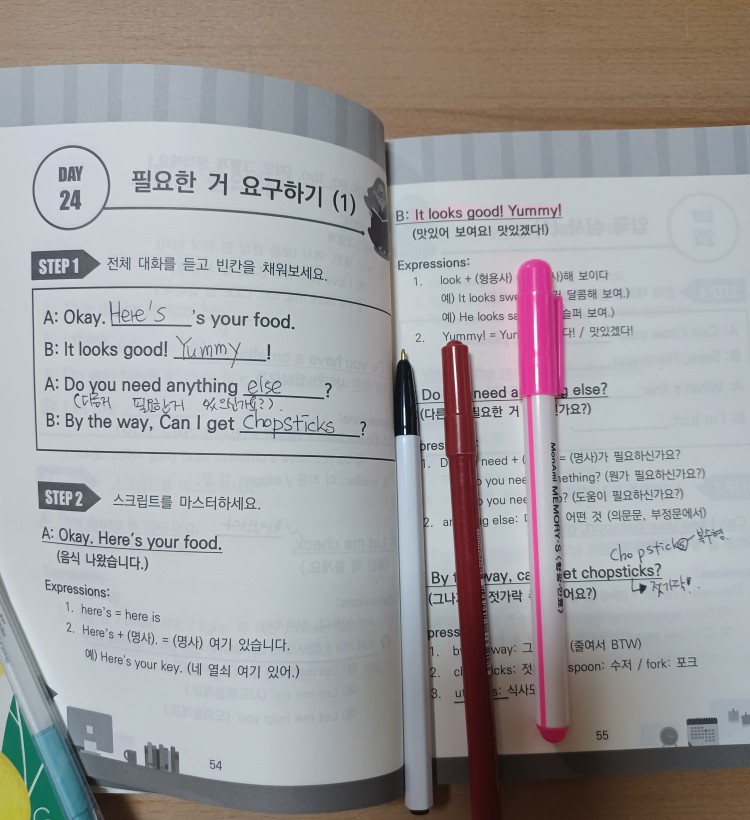 DAY
24
필요한 거 요구하기 (1)
STEP 1 전체 대화를 듣고 빈칸을 채워보세요.
A: Okay. Here's 's your food.
B: It looks good! Yummy !
A: Do you need anything else ?
(다른거 필요한거 있으신가요?).
B: By the way, Can I get chopsticks ?
STEP 2 스크립트를 마스터하세요.
A: Okay. Here's your food.
(음식 나왔습니다.)
Expressions:
1. here's = here is
2. Here's + (명사). = (명사) 여기 있습니다.
예) Here's your key. (네 열쇠 여기 있어.)
54
B: It looks good! Yummy!
(맛있어 보여요! 맛있겠다!)
Expressions:
1. look + (형용사) 해 보이다
예) It looks 달콤해 보여.)
예) He looks 보여.)
2. Yummy! = 다! / 맛있겠다!
Do need else?
(다른 필요한 거 가요?)
1. need + ( = (명사)가 필요하신가요?
you (뭔가 필요하신가요?)
you (도움이 필요하신가요?)
2. else: 어떤 것 (의문문, 부정문에서)
chopsticks 복수형.
By way, get chopsticks?
젓가락!
젓가락
1. (줄여서 BTW)
2. spoon: 수저 / fork: 포크
3. 식사도
55
MonAmi MEMORY·S <형광 인품>